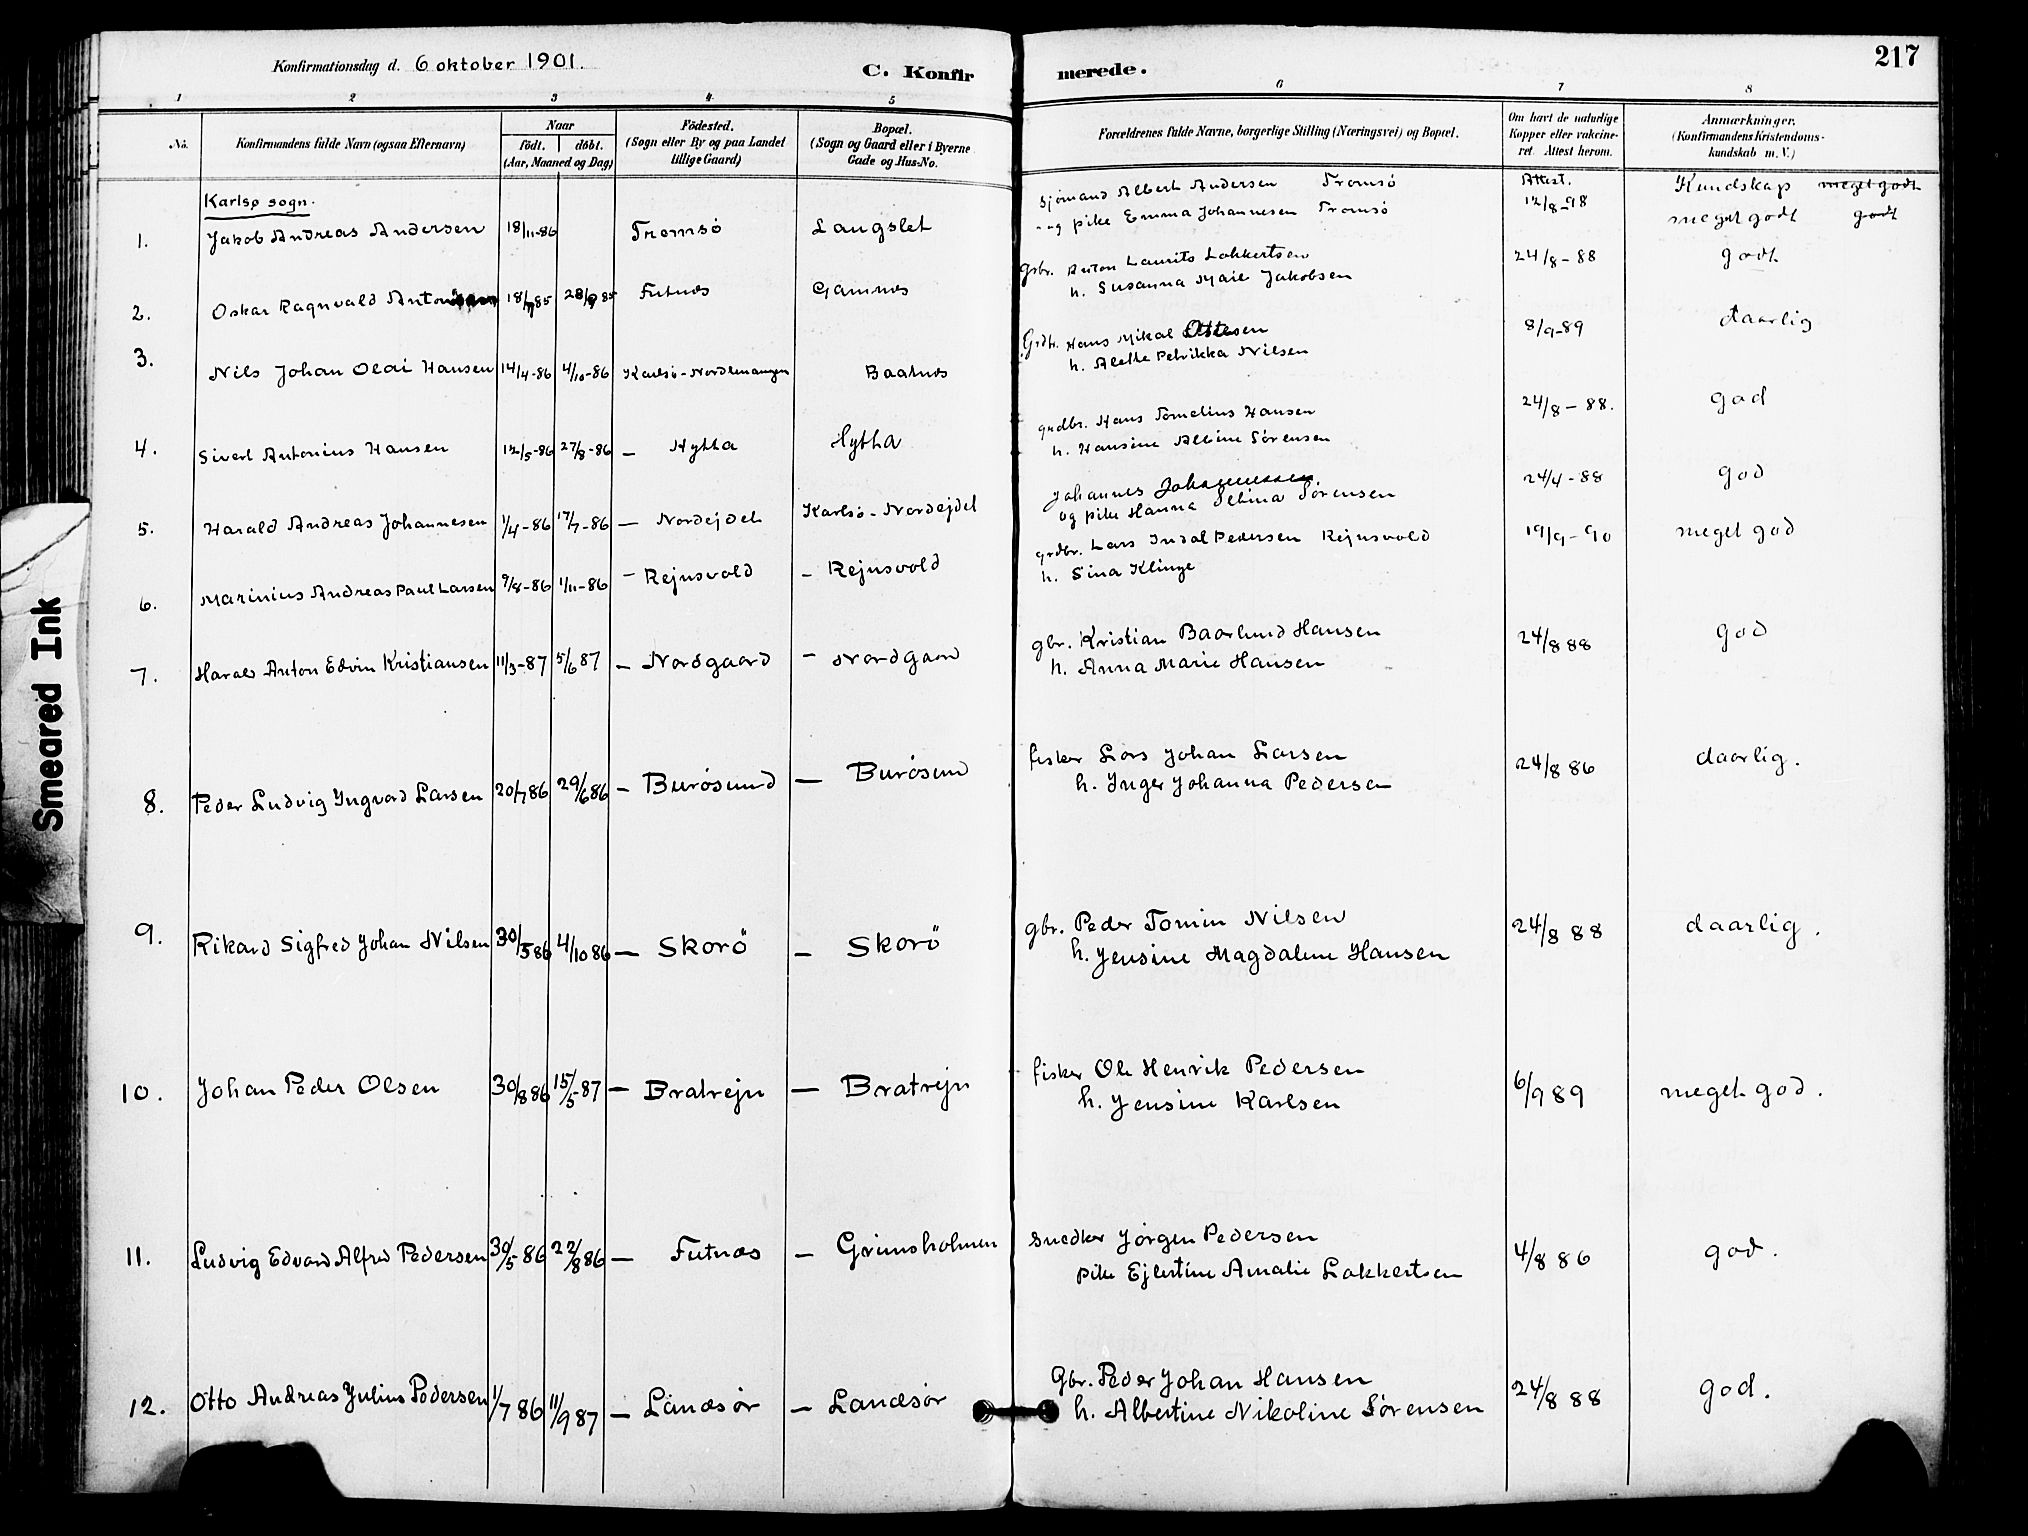 Konfirmationsdag d. 6 oktober 1901.
C. Konfirmerede.
217
1 2 3 4 5 6 7 8
No.
Konfirmandens fulde Navn (ogsaa Efternavn)
Naar
födt. döbt.
(Aar, Maaned og Dag)
Födested.
(Sogn eller By og paa Landet
tillige Gaard)
Bopæl.
(Sogn og Gaard eller i Byerne
Gade og Hus-No.
Forældrenes fulde Navne, borgerlige Stilling (Næringsvei) og Bopæl.
Om havt de naturlige
Kopper eller vakcine-
ret. Attest herom.
Anmærkninger.
(Konfirmandens Kristendoms-
kundskab m. V.)
Karlsø sogn.
1. Jakob Andreas Andersen 18/11-86 Tromsö Langslet
Sjömand Albert Andersen Tromsö
og pike Emma Johannesen Tromsö
Attest.
12/8-98
Kundskap meget godt
meget godt godt
2. Oskar Ragnvald 28/9 85 Futnæs Gamnes
Gbr. Anton Laurits Lokkertsen
h. Susanna Marie Jakobsen
24/8-88 godt
3. Nils Johan Olai Hansen 14/4-86 4/10-86 Karlsö-Nordlenangen Baatnes
Grdbr. Hans Mikal Ottesen
h. Alethe Petrikka Nilsen
8/9-89 daarlig
4. Sivert Antonius Hansen 12/5-86 27/8-86 – Hytta Hytta
grdbr. Hans Hansen
h. Hansine Albine Sörensen
24/8-88. god
5. Harald Andreas Johannesen 1/4-86 17/7-86 – Nordejdet Karlsö-Nordejdet
Johannes Johannessen
og pike Hanna Selina Sörensen
24/4-88 god
6. Marinius Andreas Paul Larsen 9/8-86 1/11-86 – Rejnsvold – Rejnsvold
grdbr. Lars Indal Pedersen Rejnsvold
h. Sina Klinge
19/9-90 meget god
7. Harald Anton Edvin Kristiansen 11/3-87 5/6 87 – Nordgaard – Nordgaard
gbr. Kristian Baarlund Hansen
h. Anna Marie Hansen
24/8 88 god
8. Peder Ludvig Ingvard Larsen 20/7 86 29/6 86 – Burösund – Burösund
fisker Lars Johan Larsen
h. Inger Johanna Pedersen
24/8 86 daarlig.
9. Rikard Sigfred Johan Nilsen 30/5 86 4/10 86 – Skorö – Skorö
gbr. Peder Tomin Nilsen
h. Jensine Magdalene Hansen
24/8 88 daarlig.
10. Johan Peder Olsen 30/8 86 15/5-87 – Bratrejn – Bratrejn
fisker Ole Henrik Pedersen
h. Jensine Karlsen
6/9 89 meget god.
11. Ludvig Edvard Alfred Pedersen 30/5 86 22/8 86 – Futnæs – Grimsholmen
Snedker Jörgen Pedersen
pike Ejlertine Amalie Lokkertsen
4/8 86 god.
12. Otto Andreas Julius Pedersen 1/7 86 11/9 87 – Lanesör – Lanesör
Gbr. Peder Johan Hansen
h. Albertine Nikoline Sörensen
24/8 88 god.
Smeared Ink